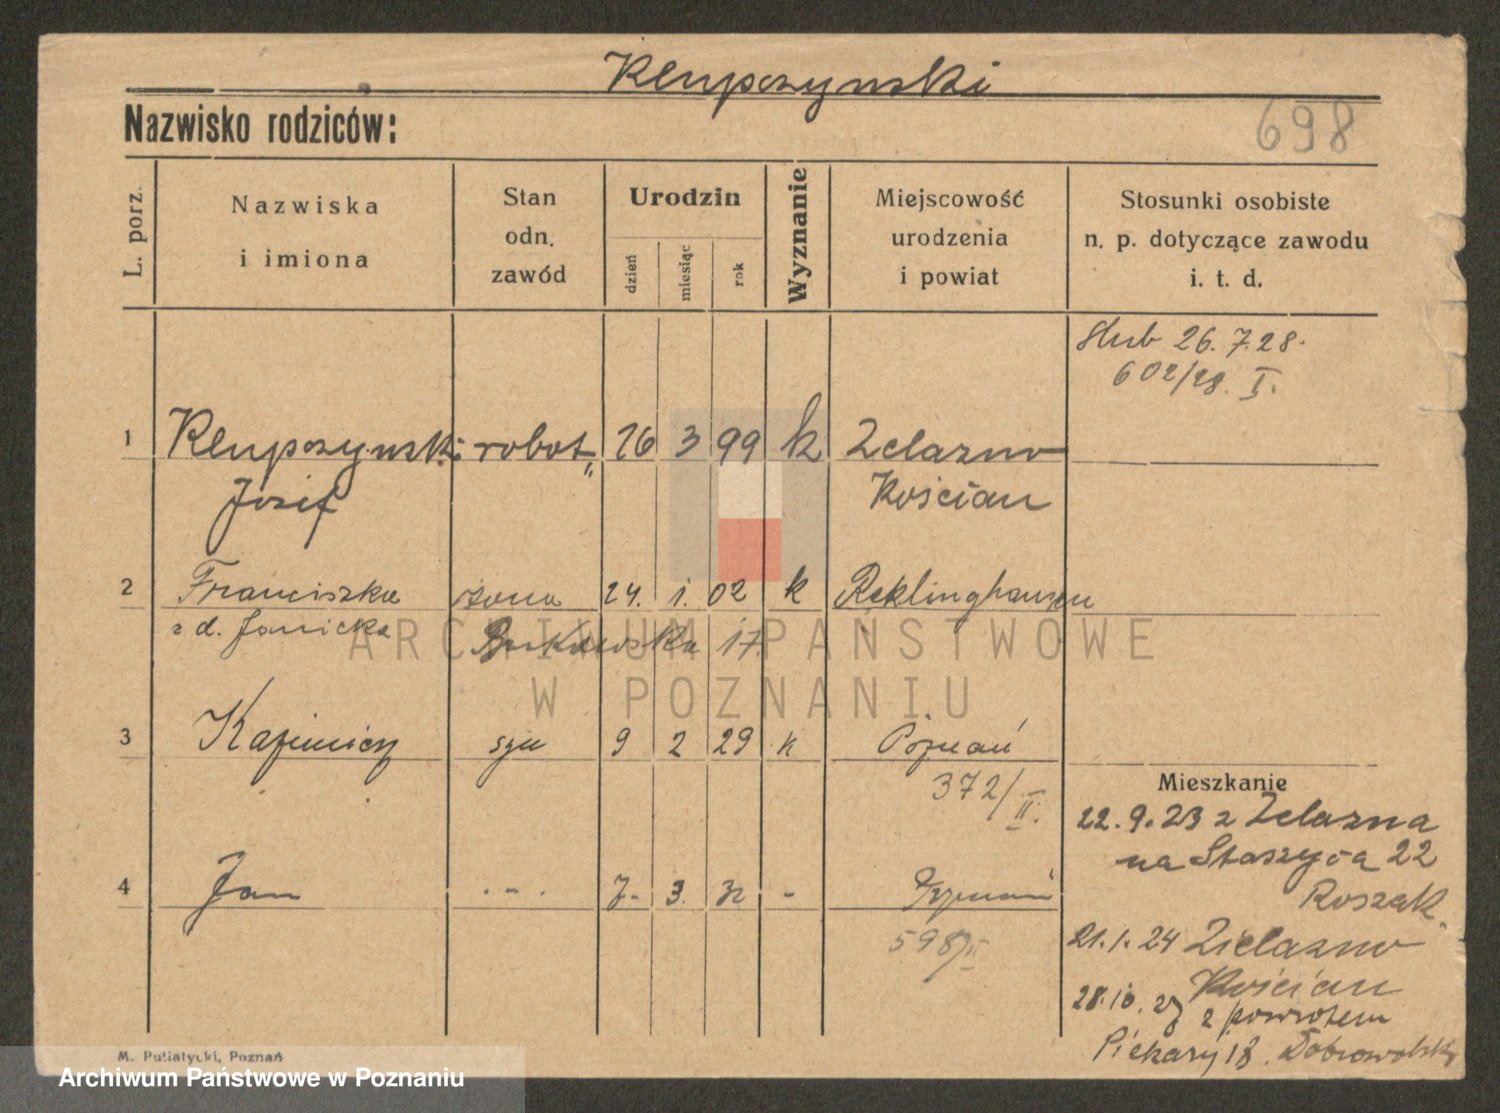 Klupczynski
Nazwisko rodziców:
698
L. porz.
Nazwiska
i imiona
Stan
odn.
zawód
Urodzin
dzień
miesiąc
rok
Wyznanie
Miejscowość
urodzenia
i powiat
Stosunki osobiste
n. p. dotyczące zawodu
i. t. d.
slub 26.7.28.
602/28. I.
1 Klupczynski robot. 16 3 99 k Zelazno
Józef Kościan
2 Franciszka żona 24. 1. 02 k Reklinghausen
z d. Janicka Bukowska 17.
ARCHIWUM PAŃSTWOWE
W POZNANIU
3 Kazimierz syn 9 2 29 k Poznań
372/II.
Mieszkanie
22.9.23 z Zelazna
na Staszyca 22
Roszak.
4 Jan . - . 7. 3. 32 - Poznań
598/II
21.1.24 Zielazno
Kościan
28.10. z powrotem
Piekary 18. Dobrowolski
M. Putiatycki, Poznań
Archiwum Państwowe w Poznaniu